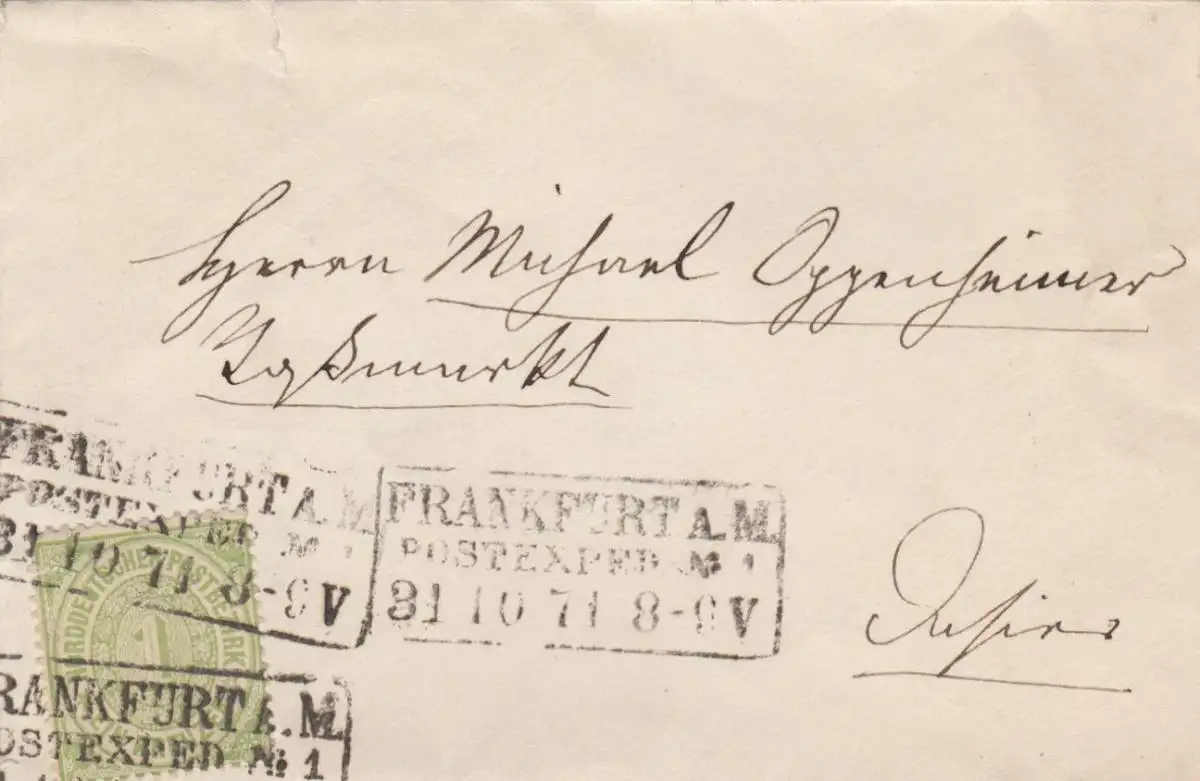 Herrn Michael Oppenheimer
Roßmarkt
FRANKFURT A.M.
POSTEXPED № 1
31 10 71 8-9 V
FRANKFURT A.M.
POSTEXPED № 1
31 10 71 8-9 V
NORDDEUTSCHER POSTBEZIRK
1
Dahier
RANKFURT A.M.
OSTEXPED № 1